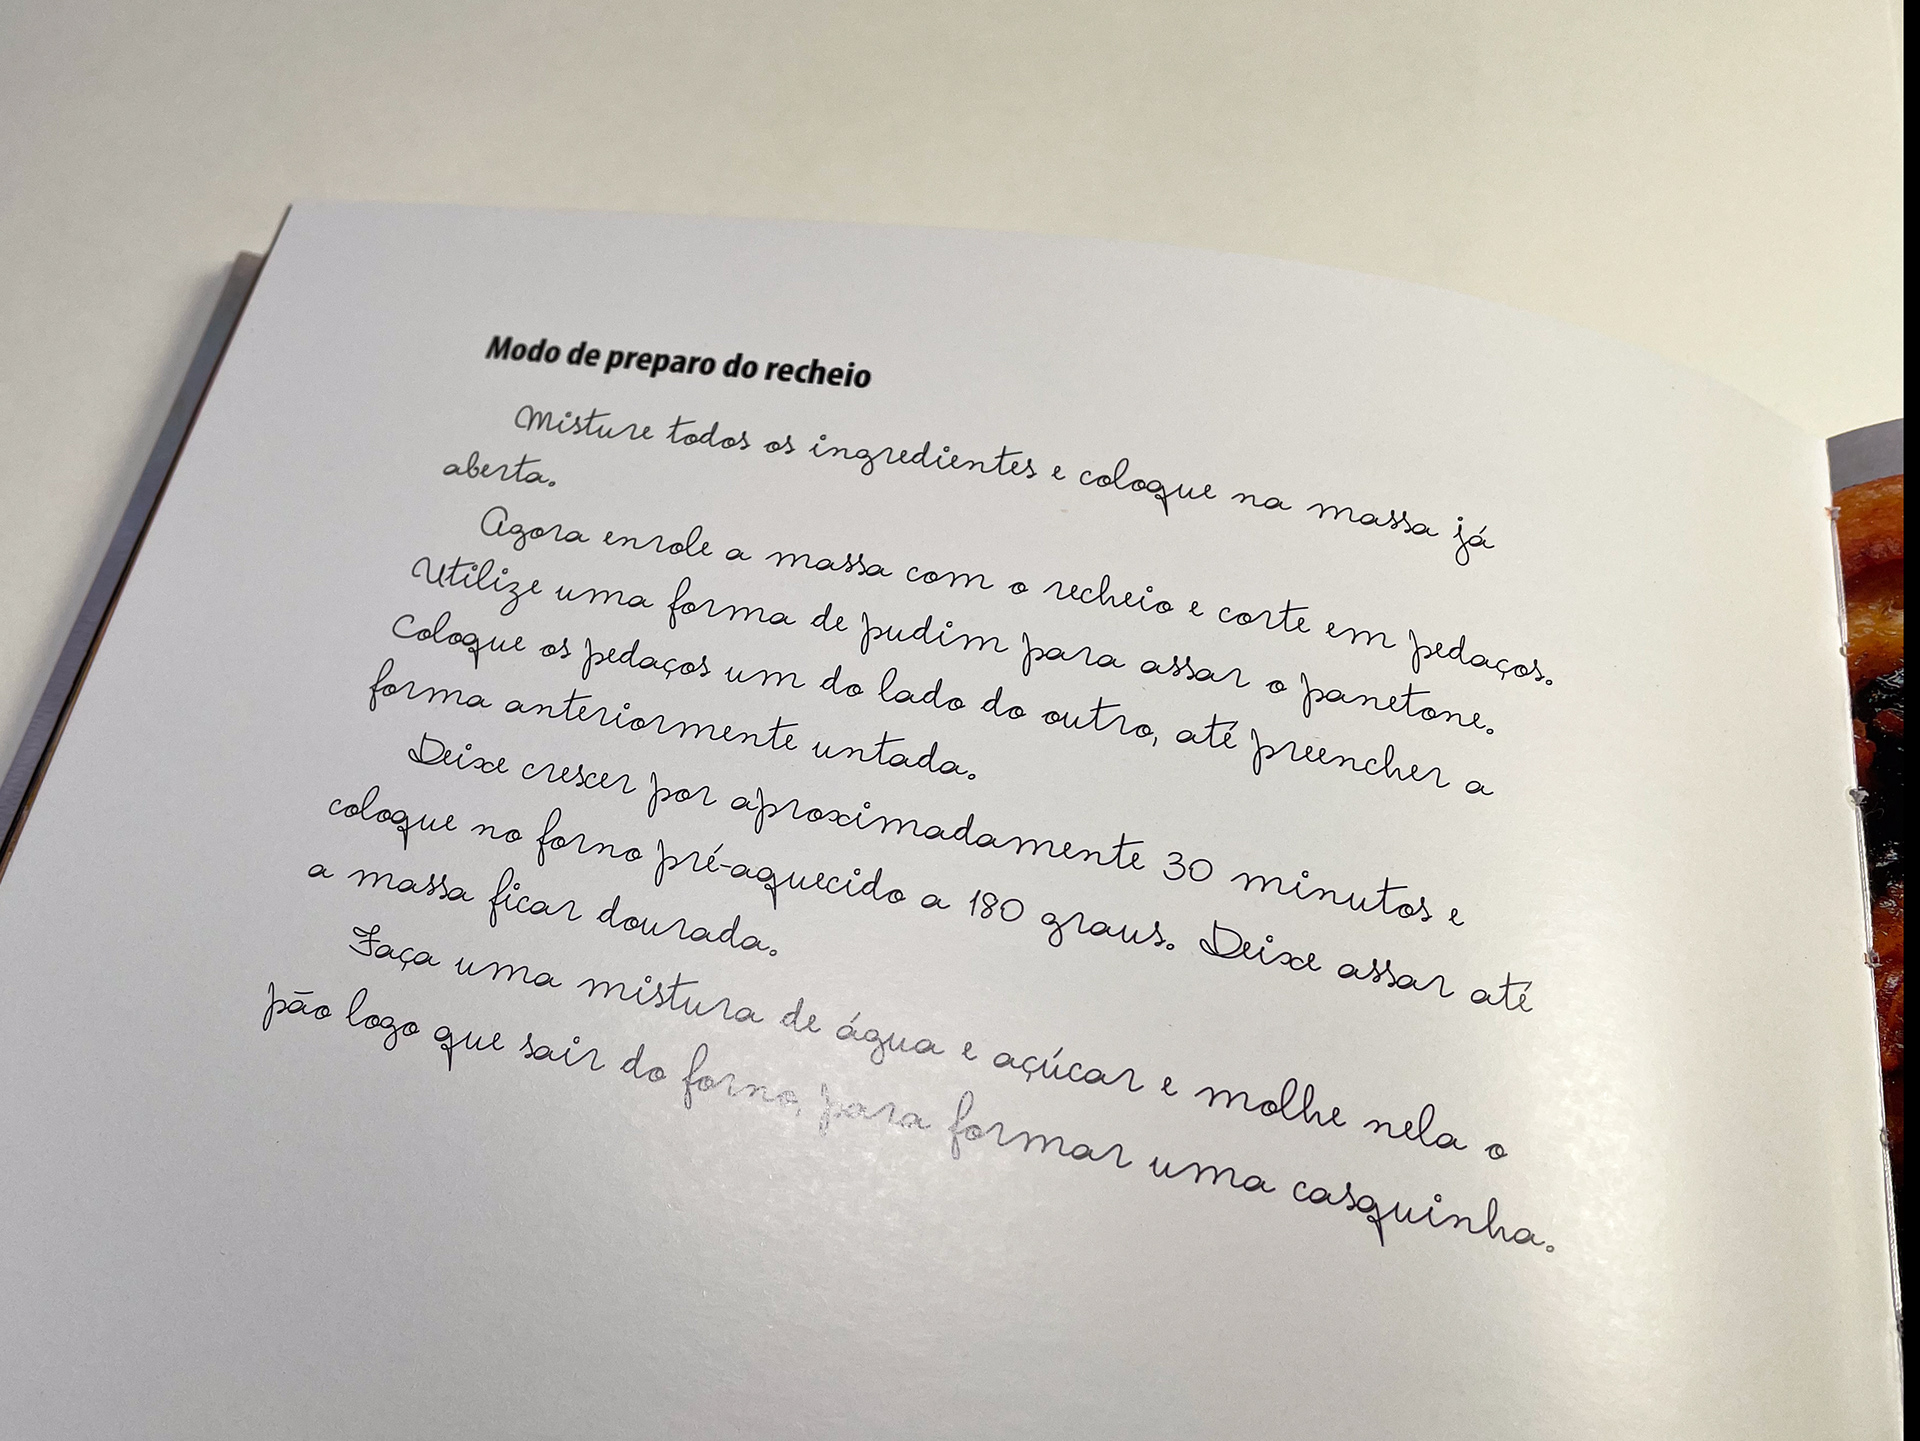 Modo de preparo do recheio
Misture todos os ingredientes e coloque na massa já
aberta.
Agora enrole a massa com o recheio e corte em pedaços.
Utilize uma forma de pudim para assar o panetone.
Coloque os pedaços um do lado do outro, até preencher a
forma anteriormente untada.
Deixe crescer por aproximadamente 30 minutos e
coloque no forno pré-aquecido a 180 graus. Deixe assar até
a massa ficar dourada.
Faça uma mistura de água e açúcar e molhe nela o
pão logo que sair do forno, para formar uma casquinha.